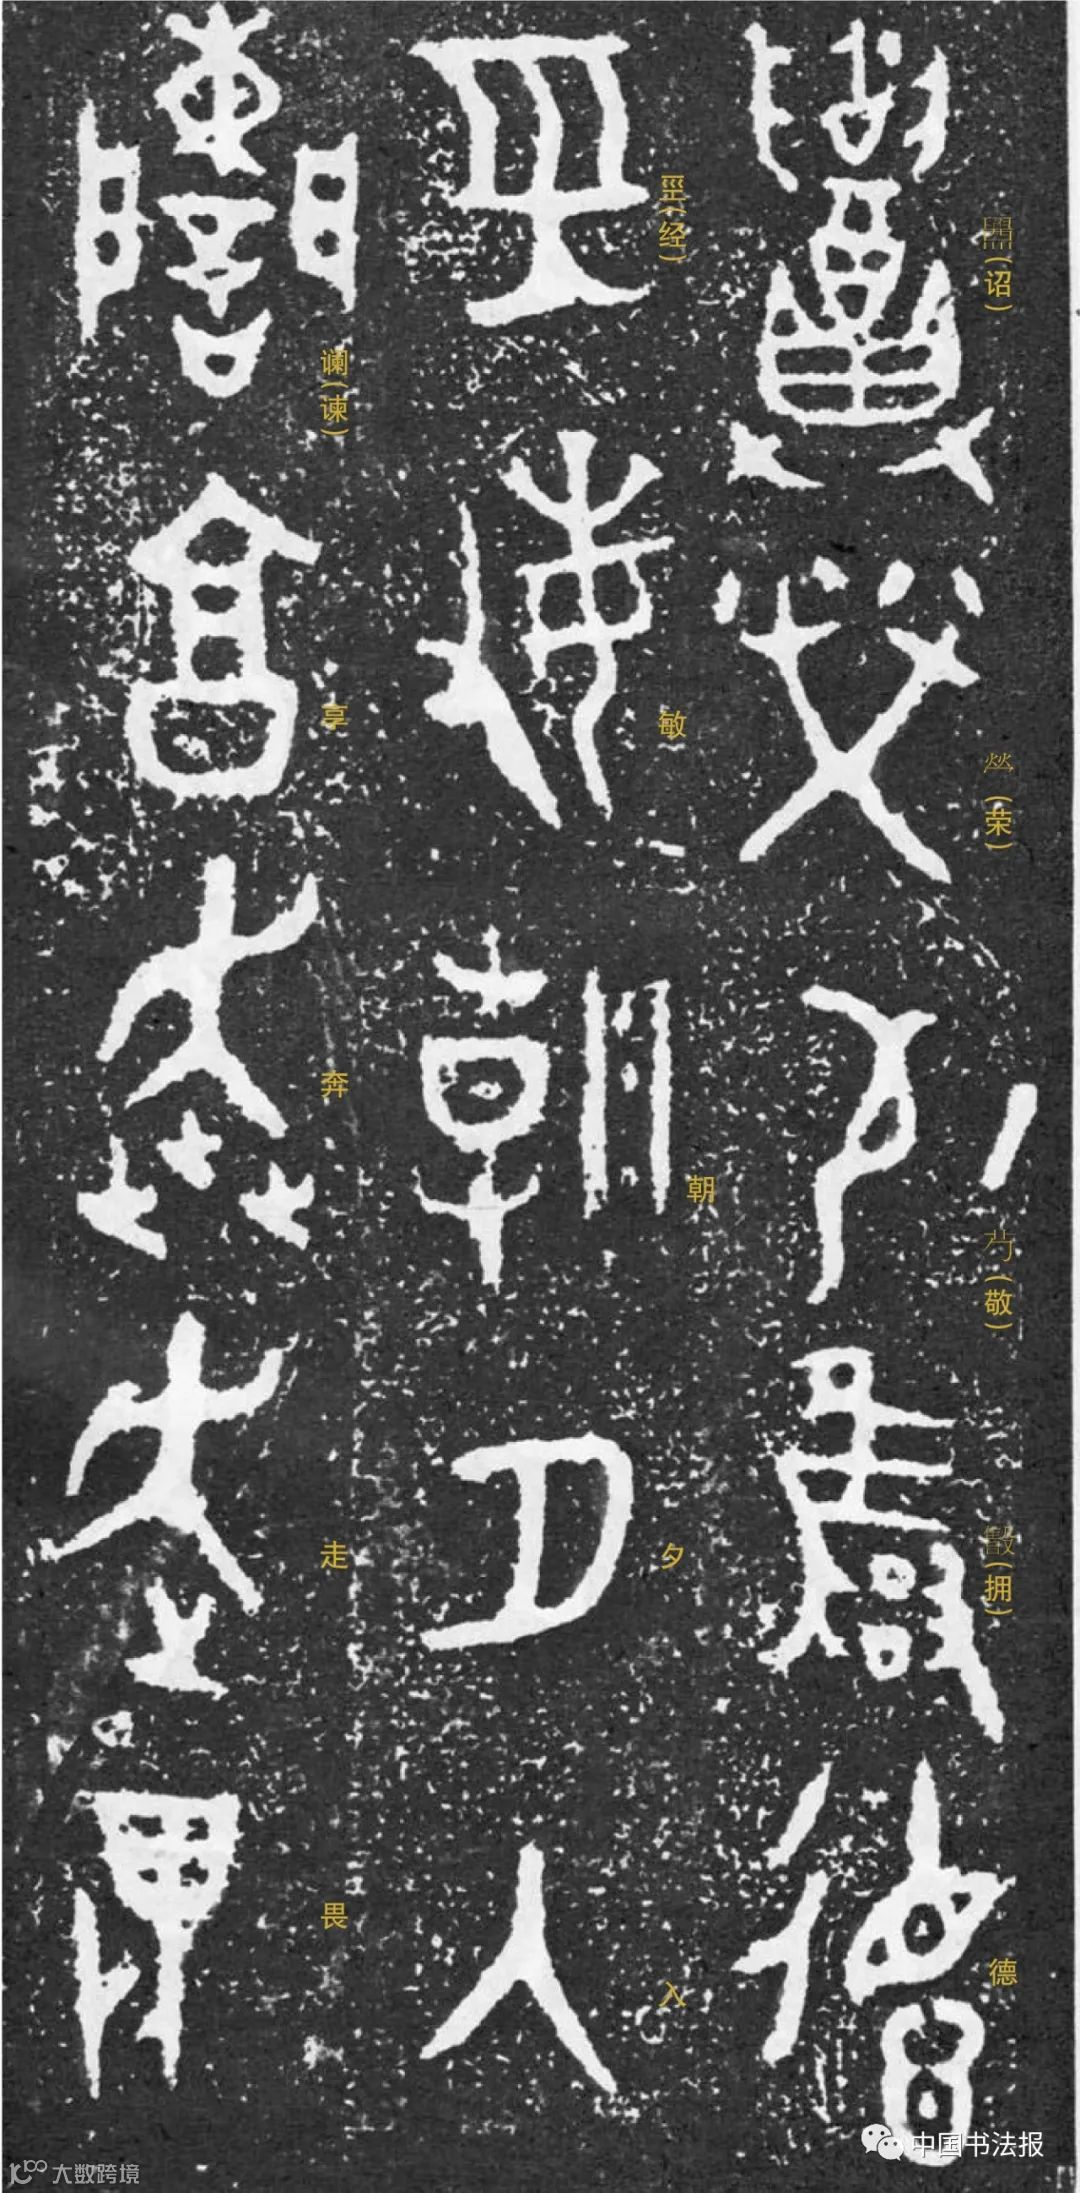 (诏) (荣) (敬) (拥) 德
巠(经) 敏 朝 夕 入
谰(谏) 享 奔 走 畏
中国书法报
大数跨境